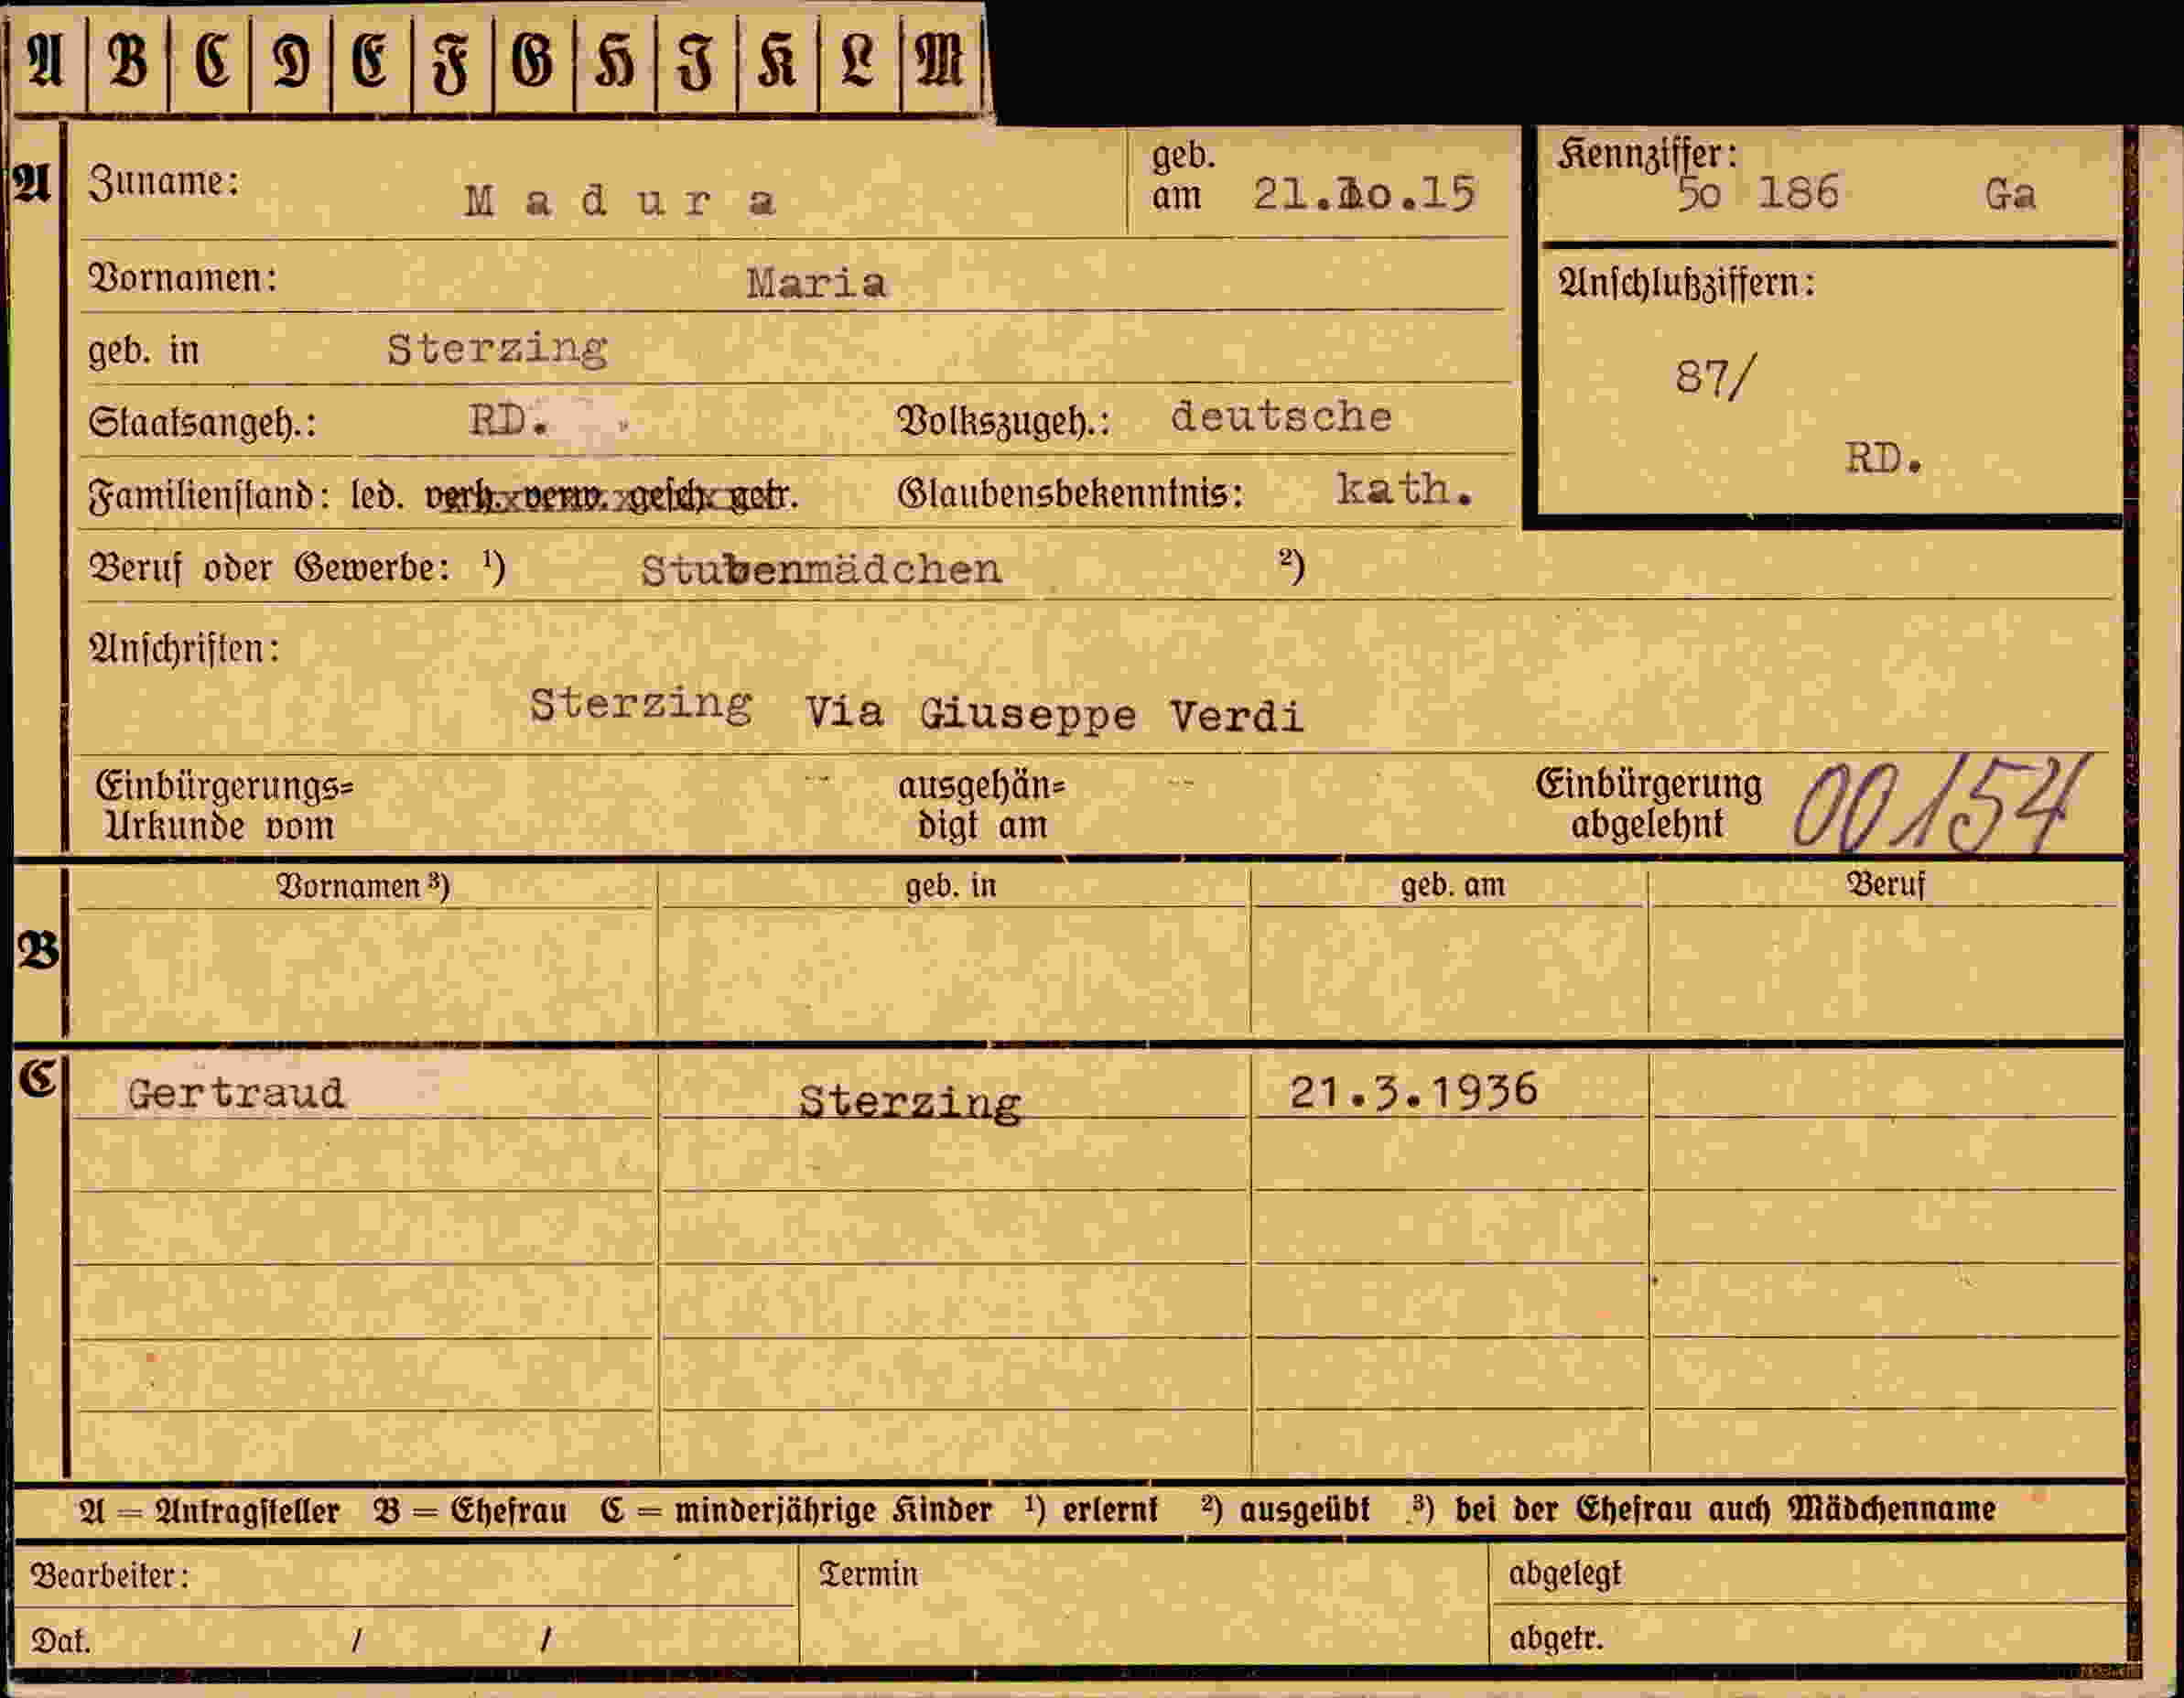 A B C D E F G H I K L M
A Zuname: Madura geb. am 21.10.15 Kennziffer: 50 186 Ga
Vornamen: Maria Anschlußziffern:
geb. in Sterzing 87/
Staatsangeh.: RD. Volkszugeh.: deutsche RD.
Familienstand: led. verh. verw. gesch. getr. Glaubensbekenntnis: kath.
Beruf oder Gewerbe: ¹) Stubenmädchen ²)
Anschriften:
Sterzing Via Giuseppe Verdi
Einbürgerungs= -- ausgehän= -- Einbürgerung 00154
Urkunde vom digt am abgelehnt
Vornamen ³) geb. in geb. am Beruf
B
C Gertraud Sterzing 21.3.1936
A = Antragsteller B = Ehefrau C = minderjährige Kinder ¹) erlernt ²) ausgeübt ³) bei der Ehefrau auch Mädchenname
Bearbeiter: Termin abgelegt
Dat. / / abgetr.